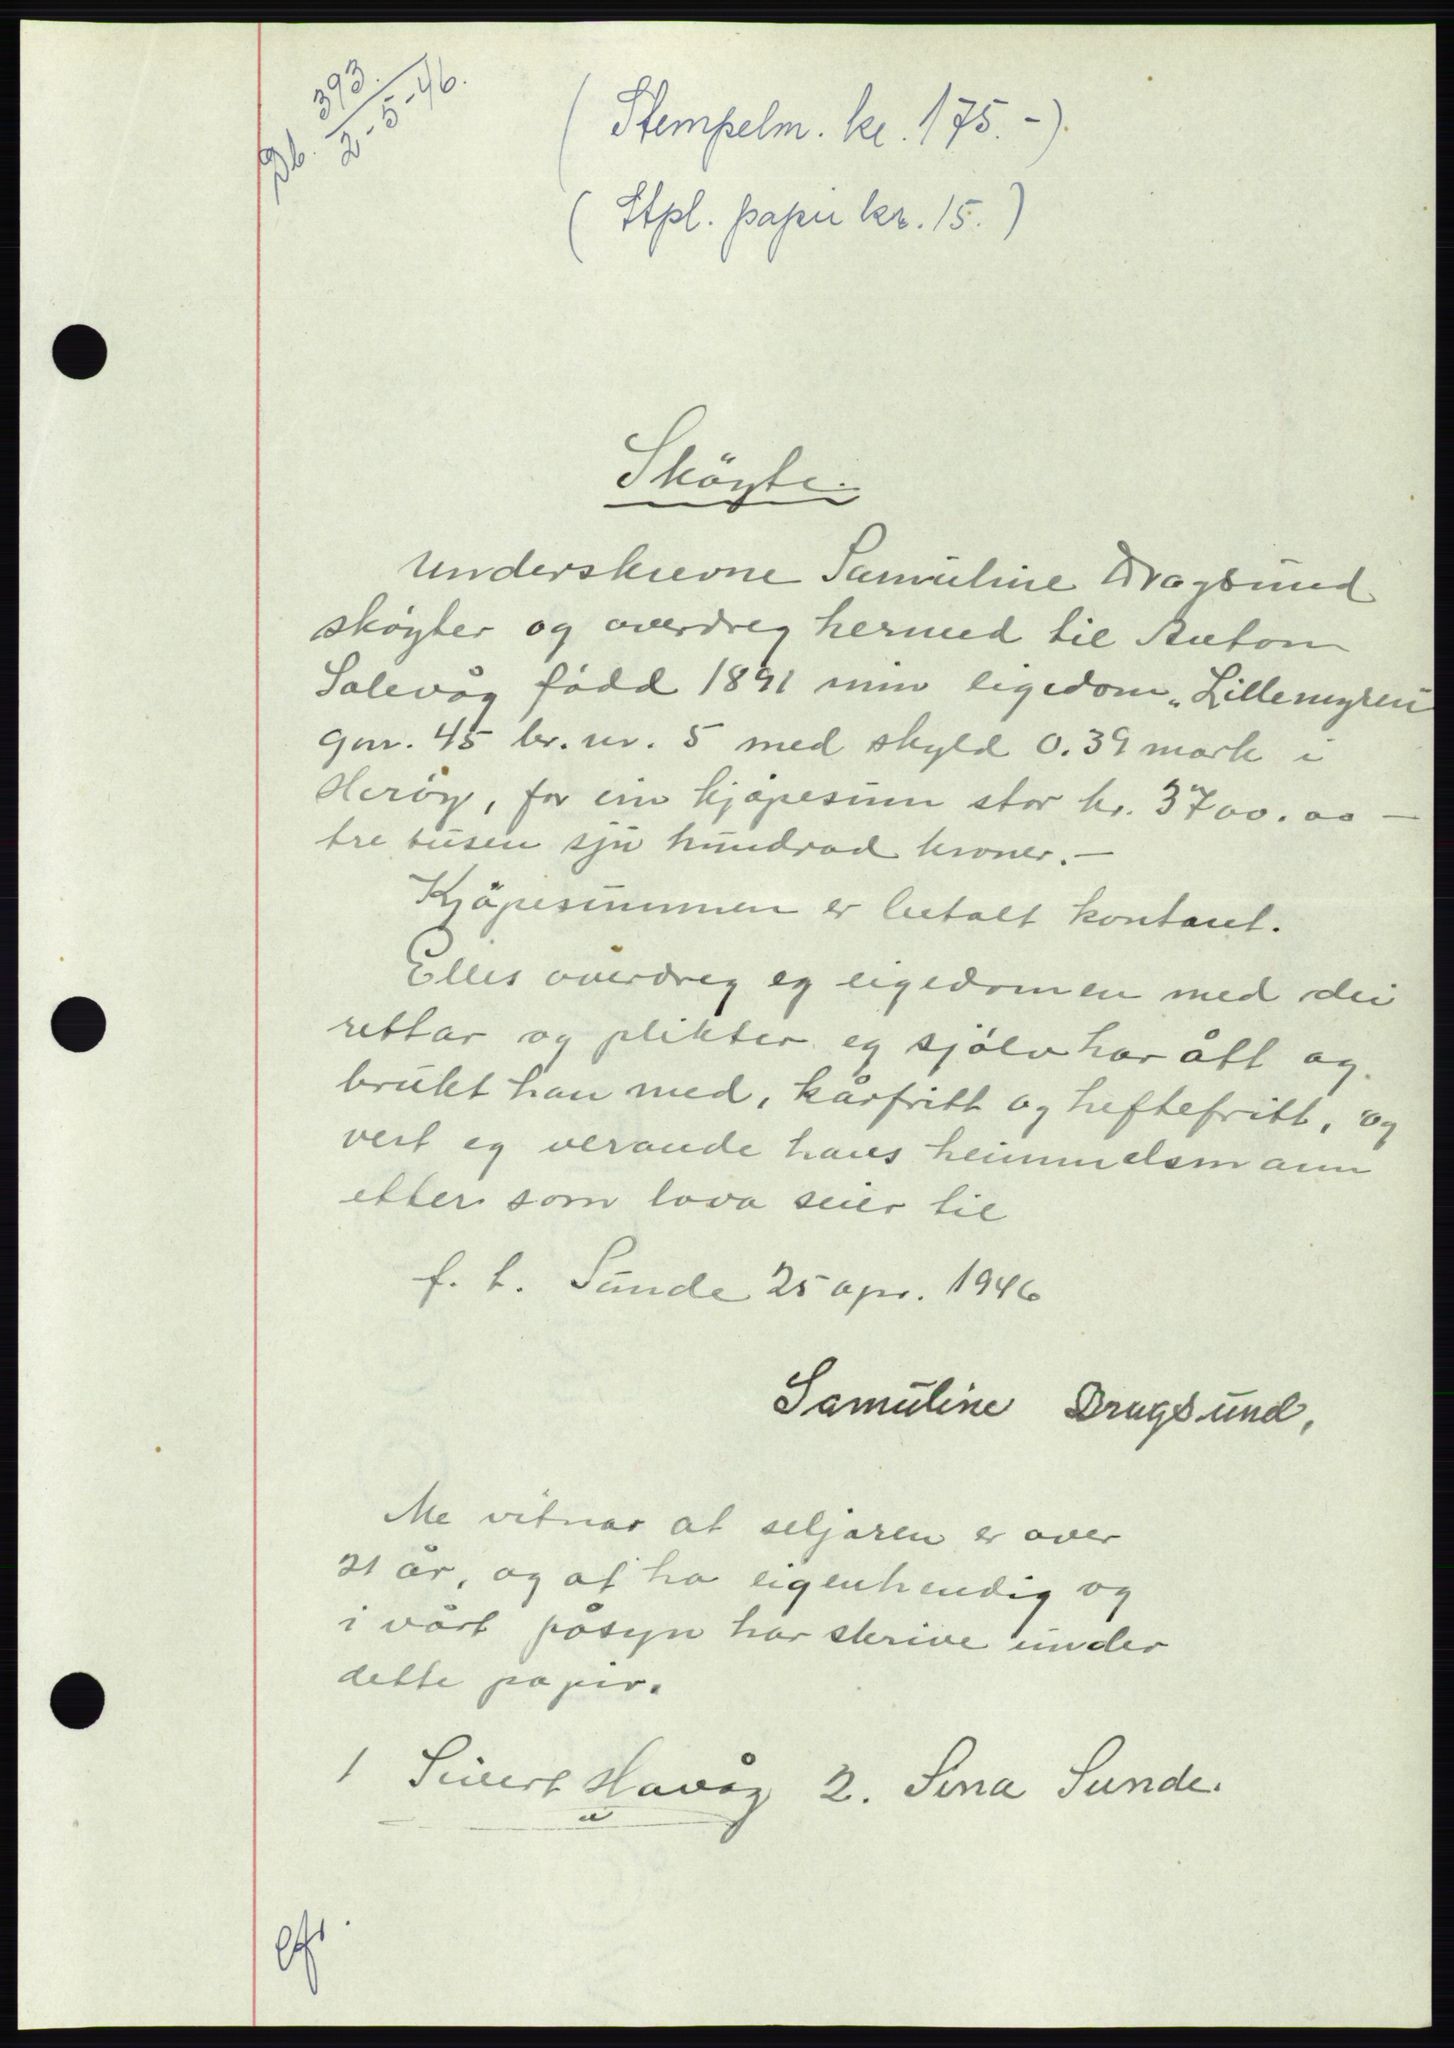 Db. 393.
2-5-46.
(Stempelm. kr. 175.-).
(Stpl. papir kr. 15.)
Sköyte.
Underskrevne Samuline Dragsund
sköyter og overdreg hermed til Anton
Solevåg född 1891 min eigedom „Lillemyren"
gnr. 45 br. nr. 5 med skyld 0.39 mark i
Heröy, for ein kjöpesum stor kr. 3700.oo —
tre tusen sju hundrad kroner.—
Kjöpesummen er betalt kontant.
Elles overdreg eg eigedomen med dei
rettar og plikter eg sjölv har ått og
brukt han med, kårfritt og heftefritt, og
vert eg verande hans heimmelsmann
etter som lova seier til
f. t. Sunde 25 apr. 1946
Samuline Dragsund,
Me vitnar at seljaren er over
21 år, og at ho eigenhendig og
i vårt påsyn har skrive under
dette papir.
1 Sivert Havåg 2. Sina Sunde.